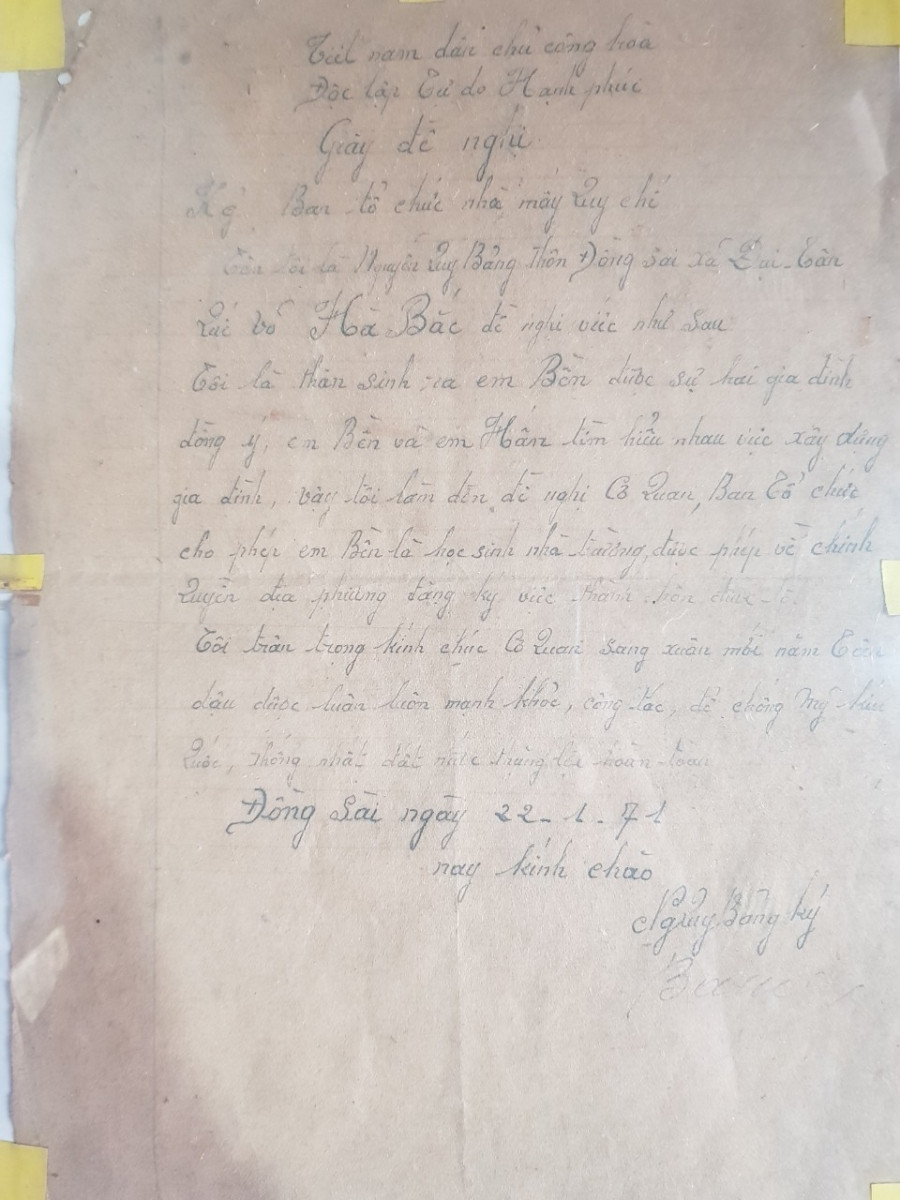 Việt nam dân chủ cộng hoà
Độc lập Tự do Hạnh phúc
Giấy đề nghị
K/g Ban tổ chức nhà máy Quy chế
Tên tôi là Nguyễn Quy Bảng thôn Đồng Sài xã Đại-Tân
Quế võ Hà Bắc đề nghị việc như sau
Tôi là thân sinh ra em Bền được sự hai gia đình
đồng ý, em Bền và em Hân tìm hiểu nhau việc xây dựng
gia đình, vậy tôi làm đơn đề nghị Cơ Quan, Ban Tổ chức
cho phép em Bền là học sinh nhà trường, được phép về chính
Quyền địa phương đăng ký việc thành hôn được tốt
Tôi trân trọng kính chúc Cơ Quan sang xuân mới năm
dậu được luân luôn mạnh khỏe, công tác, để chống Mỹ cứu
Quốc, thống nhất đất nước thắng lợi hoàn toàn
Đồng Sài ngày 22-1-71
nay kính chào
Ng Quy Bảng ký